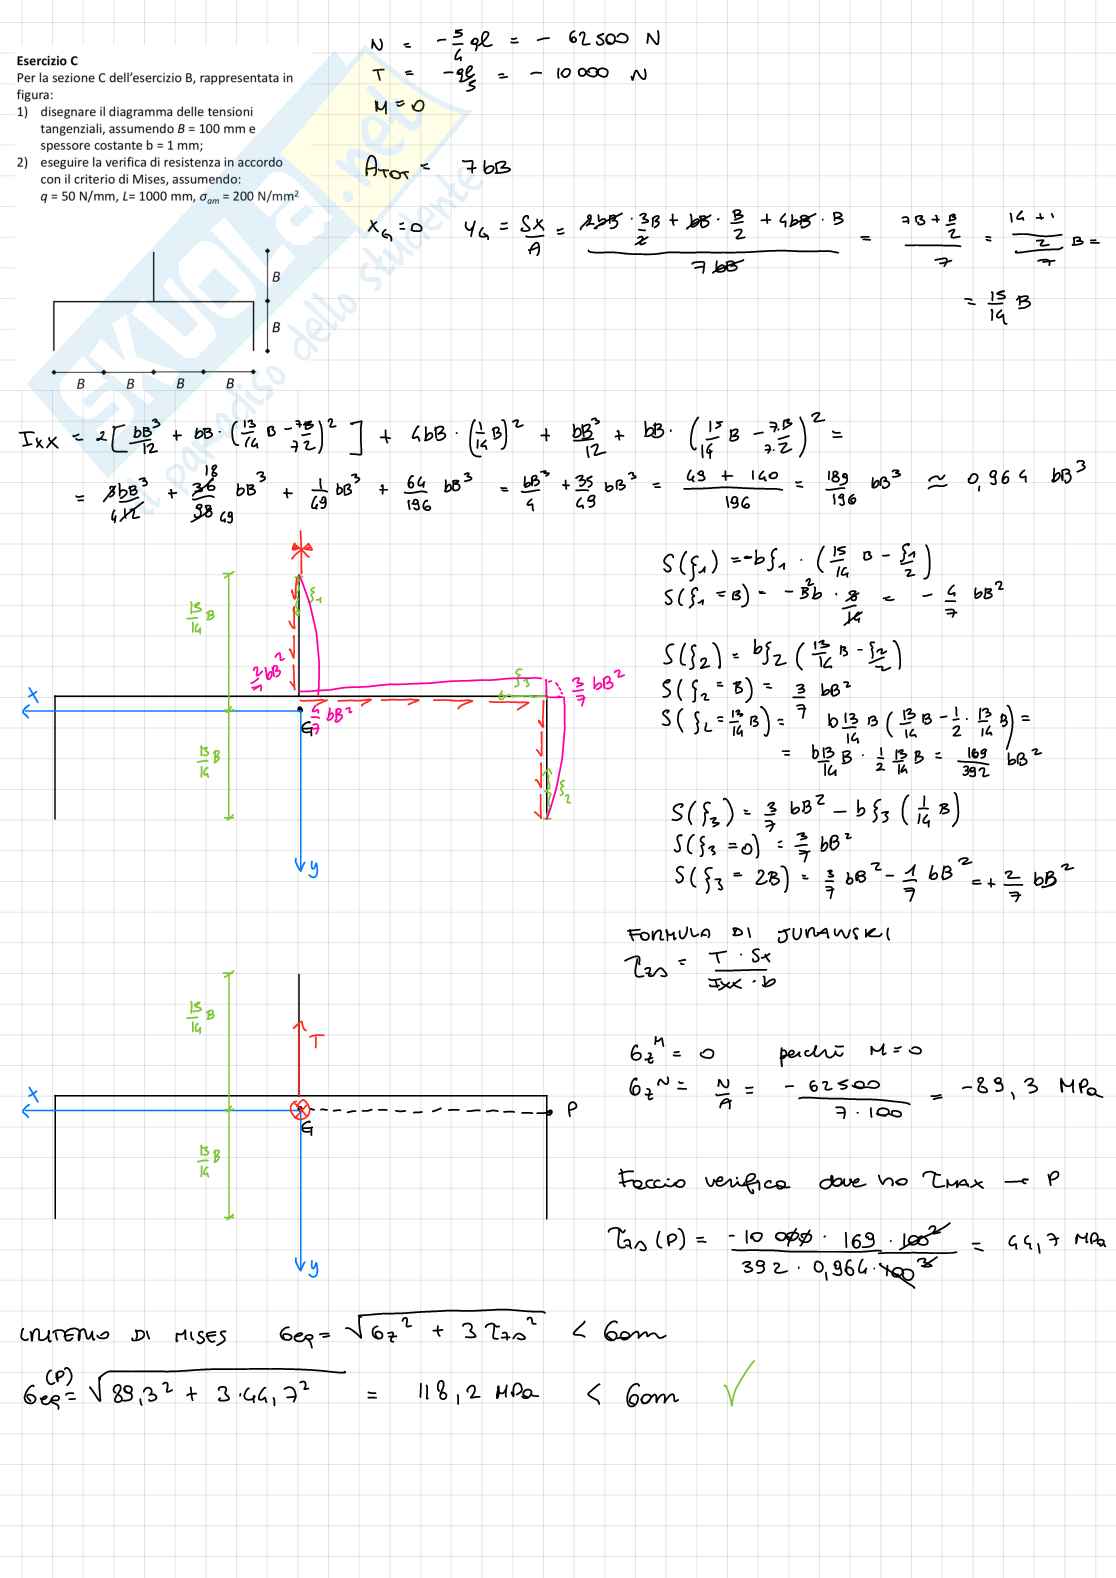 Esercizio C
Per la sezione C dell'esercizio B, rappresentata in
figura:
1) disegnare il diagramma delle tensioni
tangenziali, assumendo B = 100 mm e
spessore costante b = 1 mm;
2) eseguire la verifica di resistenza in accordo
con il criterio di Mises, assumendo:
q = 50 N/mm, L= 1000 mm, σam = 200 N/mm²
B
B
B B B B
SKUOLA.net
il paradiso dello studente
N = -5/4 ql = - 62500 N
T = -ql/5 = - 10 000 N
M = 0
ATOT = 7bB
XG = 0 YG = SX/A = (2bB · 3/2 B + bB · B/2 + 4bB · B)/(7bB) = (7B + B/2)/7 = ((14 + 1)/2)/7 B =
= 15/14 B
Ixx = 2[bB³/12 + bB · (13/14 B - 7B/7·2)²] + 4bB · (1/14 B)² + bB³/12 + bB · (15/14 B - 7B/7·2)² =
= 3bB³/12 + 36/98 bB³ + 1/49 bB³ + 64/196 bB³ = bB³/4 + 35/49 bB³ = (49 + 140)/196 = 189/196 bB³ ≃ 0,964 bB³
S(ξ1) = -bξ1 · (15/14 B - ξ1/2)
S(ξ1 = B) = -B²b · 8/14 = - 4/7 bB²
S(ξ2) = bξ2 (13/14 B - ξ2/2)
S(ξ2 = B) = 3/7 bB²
S(ξ2 = 13/14 B) = b 13/14 B (13/14 B - 1/2 · 13/14 B) =
= b 13/14 B · 1/2 13/14 B = 169/392 bB²
S(ξ3) = 3/7 bB² - bξ3 (1/14 B)
S(ξ3 = 0) = 3/7 bB²
S(ξ3 = 2B) = 3/7 bB² - 1/7 bB² = + 2/7 bB²
15/14 B
ξ1
2/7 bB²
ξ3
3/7 bB²
x
4/7 bB²
G
13/14 B
ξ2
y
FORMULA DI JURAWSKI
τzs = T · Sx / Ixx · b
15/14 B
T
x
P
G
13/14 B
y
σz^M = 0 perchè M = 0
σz^N = N/A = - 62500 / 7 · 100 = -89,3 MPa
Faccio verifica dove ho τMAX → P
τzs (P) = -10 000 · 169 · 100² / 392 · 0,964 · 100³ = 44,7 MPa
CRITERIO DI MISES σeq = √(σz² + 3 τzs²) < σam
σeq(P) = √(89,3² + 3·44,7²) = 118,2 MPa < σam ✓